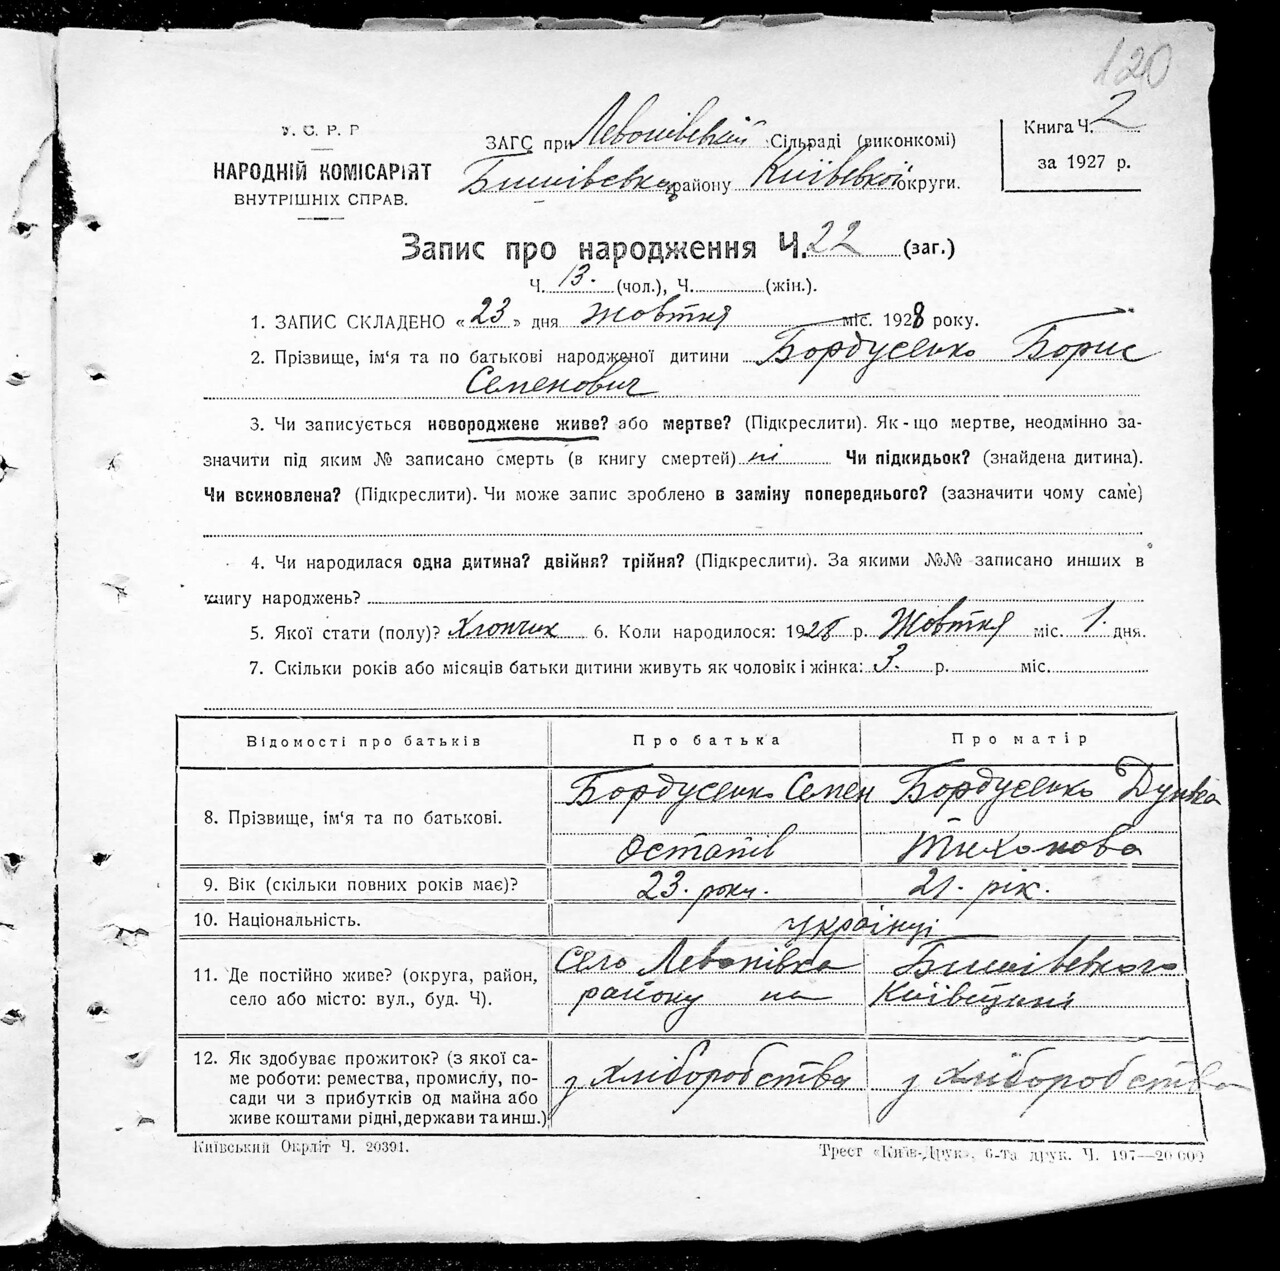 120
У. С. Р. Р
НАРОДНІЙ КОМІСАРІЯТ
ВНУТРІШНІХ СПРАВ.
ЗАГС при Левонівській Сільраді (виконкомі)
Бишівського району Київської округи.
Книга Ч. 2
за 1927 р.
Запис про народження Ч. 22 (заг.)
Ч. 13. (чол.), Ч. (жін.).
1. ЗАПИС СКЛАДЕНО « 23 » дня Жовтня міс. 1928 року.
2. Прізвище, ім'я та по батькові народженої дитини Бордусенко Борис
Семенович
3. Чи записується новороджене живе? або мертве? (Підкреслити). Як-що мертве, неодмінно за-
значити під яким № записано смерть (в книгу смертей) ні Чи підкидьок? (знайдена дитина).
Чи всиновлена? (Підкреслити). Чи може запис зроблено в заміну попереднього? (зазначити чому саме)
4. Чи народилася одна дитина? двійня? трійня? (Підкреслити). За якими №№ записано инших в
книгу народжень?
5. Якої стати (полу)? Хлопчик 6. Коли народилося: 1928 р. Жовтня міс. 1. дня.
7. Скільки років або місяців батьки дитини живуть як чоловік і жінка: 3. р. міс.
Відомості про батьків Про батька Про матір
8. Прізвище, ім'я та по батькові.
Бордусенко Семен
Остапів
Бордусенко Дунька
Тихонова
9. Вік (скільки повних років має)? 23. роки. 21. рік.
10. Національність. українці
11. Де постійно живе? (округа, район,
село або місто: вул., буд. Ч).
Село Левонівка Бишівського
району на Київщині
12. Як здобуває прожиток? (з якої са-
ме роботи: ремества, промислу, по-
сади чи з прибутків од майна або
живе коштами рідні, держави та инш.)
з хліборобства з хліборобства
Київський Окрліт Ч. 20391.
Трест «Київ-Друк», 6-та друк. Ч. 197—20 000